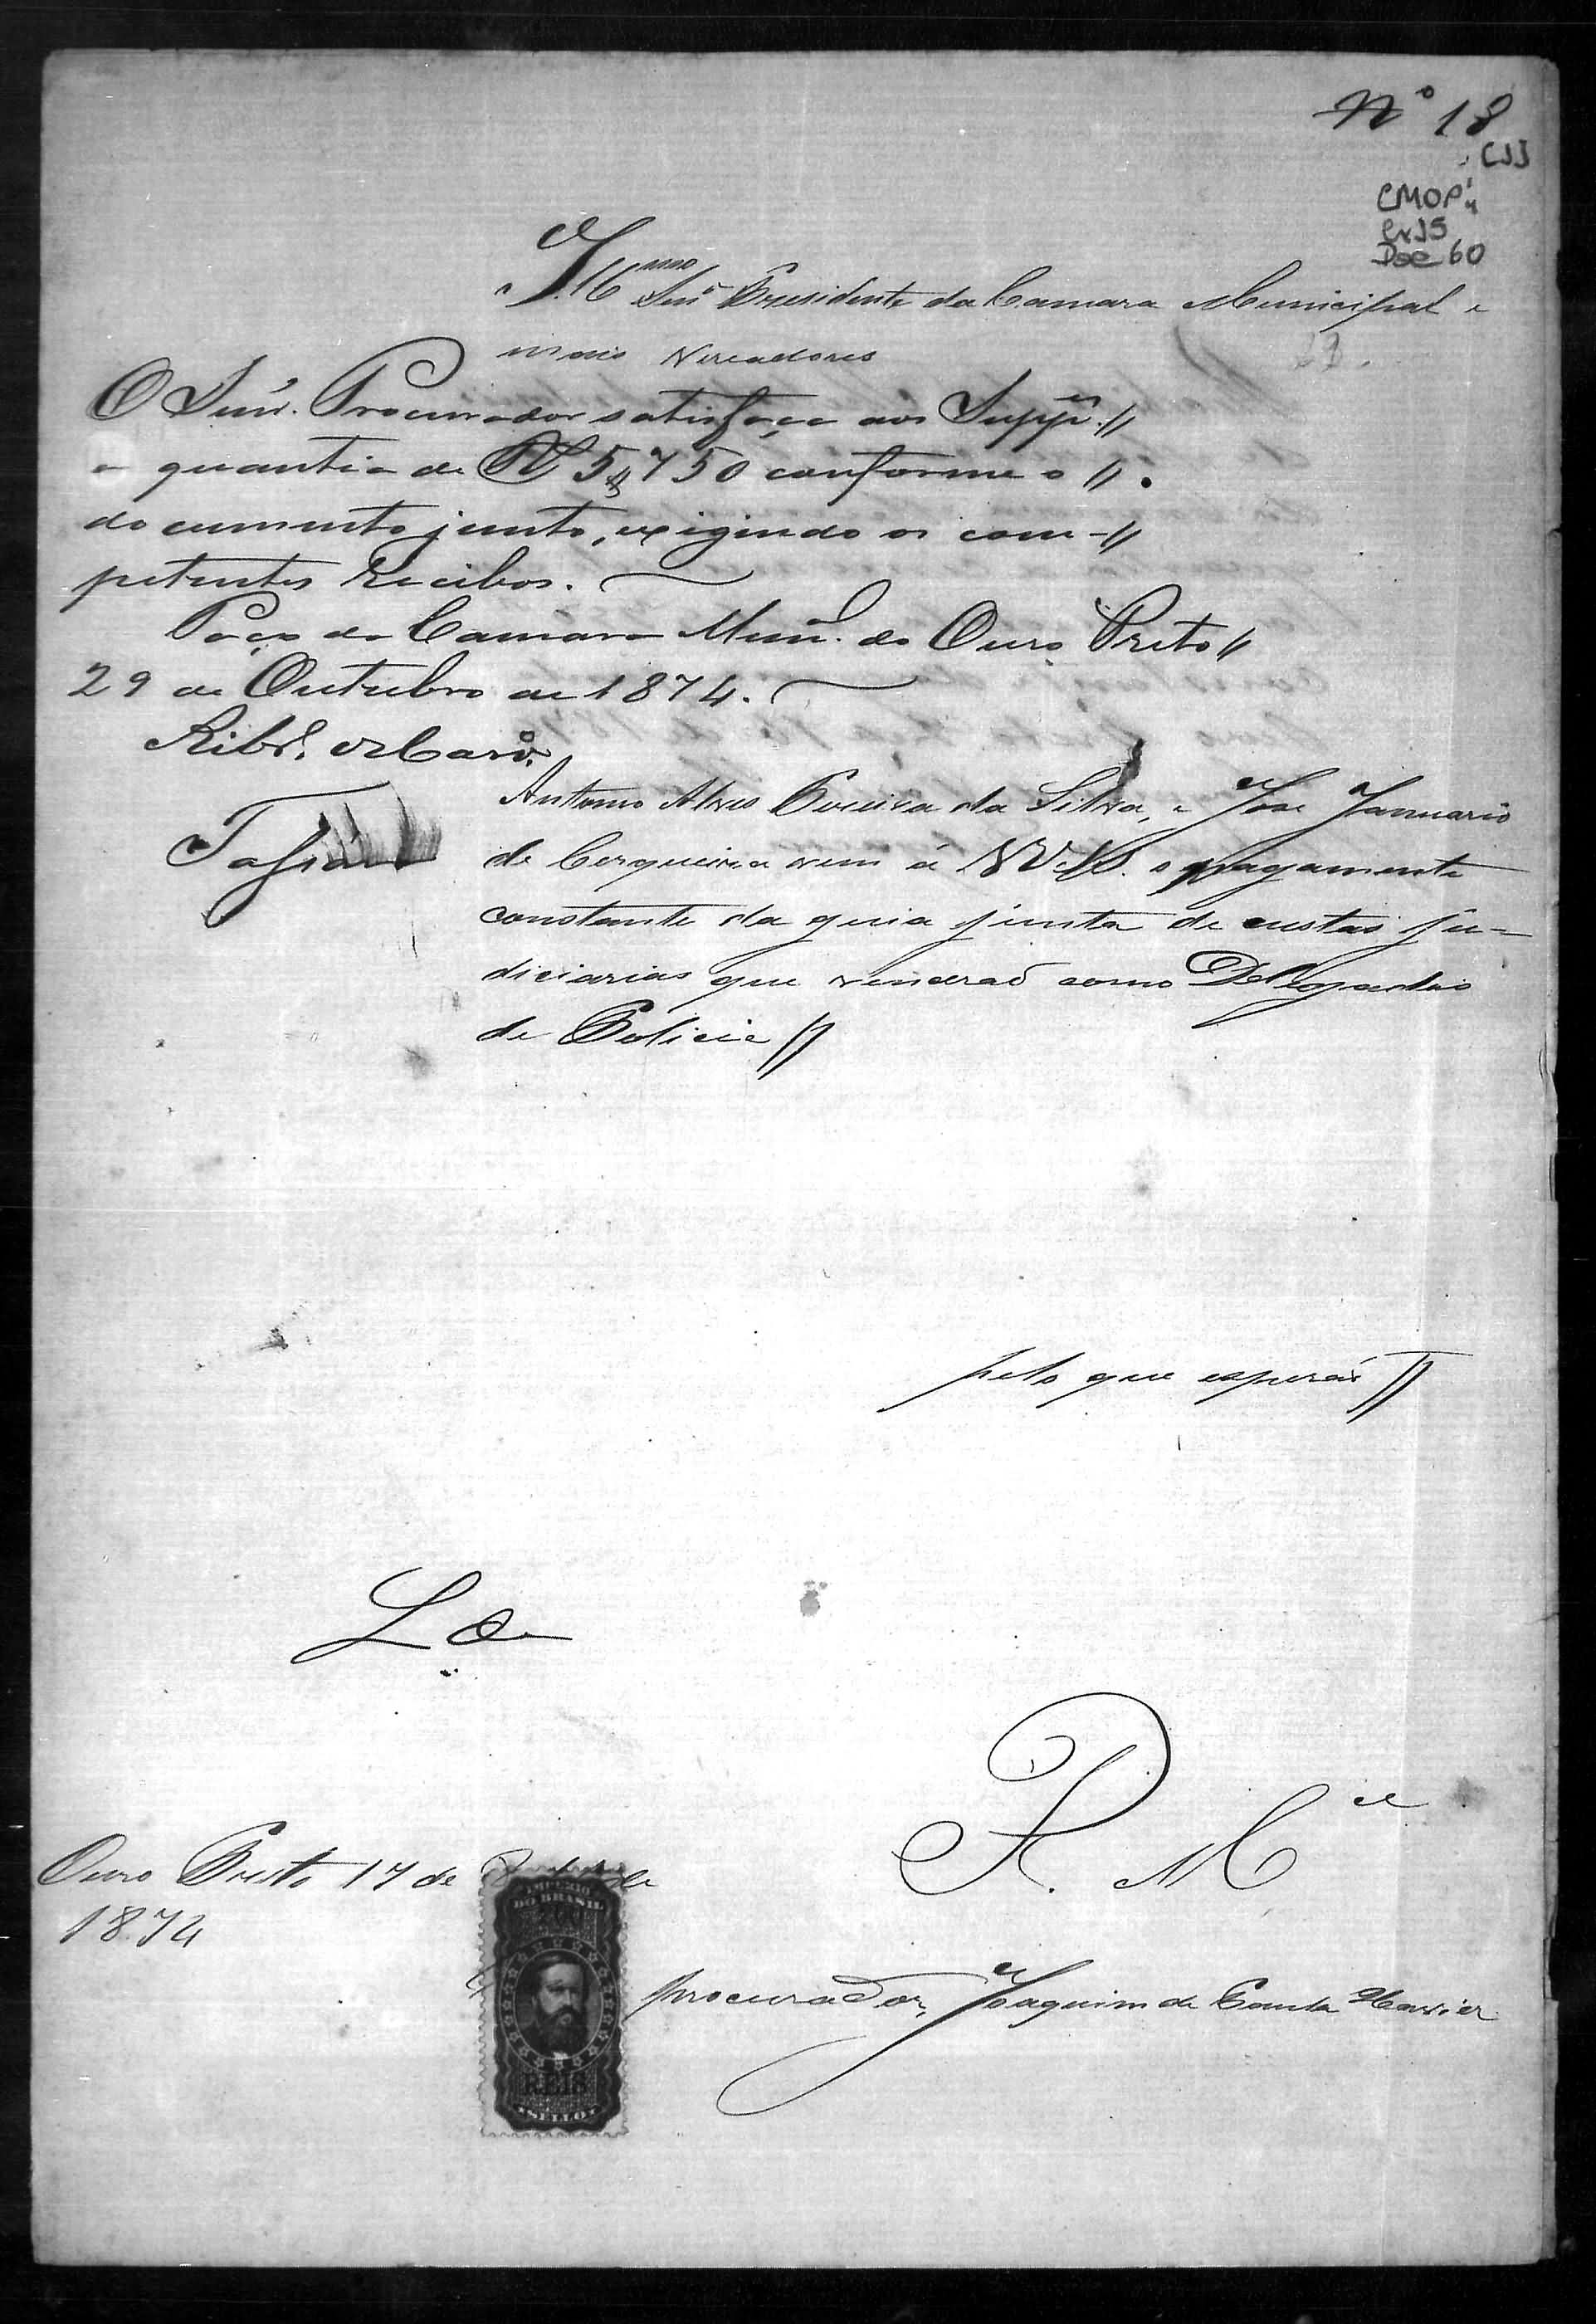 Nº 18
CMOP
Cx 15
Doc 60
Ill.mo Senr Presidente da Camara Municipal e
mais Vereadores
O Senr. Procurador satisfaça aos Supp.es //
a quantia de Rs 5$750 conforme o //
documento junto, exigindo os com- //
petentes recibos.
Paço da Camara Mun. do Ouro Preto //
29 de Outubro de 1874.
Ribr.
Antonio Alves Pereira da Silva, e Jose Januario
de Cerqueira vem á VV SS. o pagamento
constante da guia junta de custas ju-
diciarias que vencerão como Delegados
de Policia //
pelo que esperão //
R. M.ce
Ouro Preto 17 de
1874
procurador, Joaquim de Xavier
IMPERIO
DO BRASIL
200
REIS
SELLO